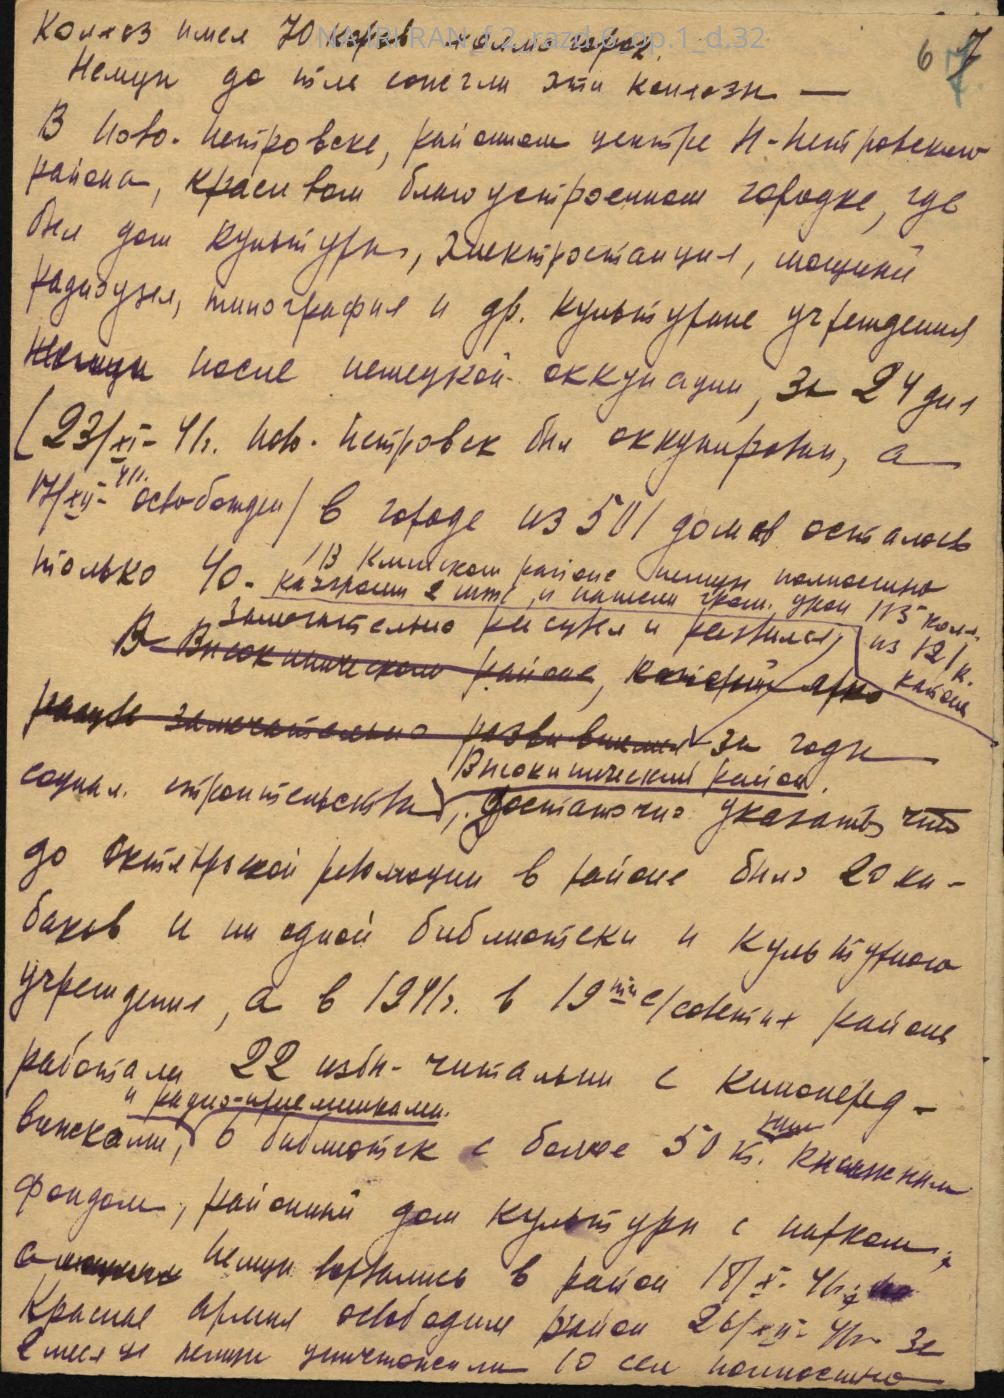 Колхоз имел 70 коров холмогорок.
NA IRI RAN_f.2_razd.6_op.1_d.32
6 7
Немцы до тла сожгли эти колхозы —
В Ново-Петровске, районном центре Н-Петровского
района, красивом благоустроенном городке, где
был дом культуры, электростанция, мощный
радиоузел, типография и др. культурные учреждения
немцы после немецкой оккупации, за 24 дня
(23/XI-41г. Ново-Петровск был оккупирован, а
17/XII-41г. освобожден) в городе из 501 домов осталось
только 40. (В Клинском районе немцы полностью
2 и 115 колх.
из 121 к.
района
Замечательно рисуел и развился
В Высокиническом районе, который ярко
замечательно развивался за годы
Высокинический район.
социал. строительства, достаточно указать что
до Октябрьской революции в районе было 20 ка-
баков и ни одной библиотеки и культурного
учреждения, а в 1941г. в 19ти с/советах района
работали 22 избы-читальни с киноперед-
и радио-приемниками.
вижками, 6 библиотек с более 50 т. книжным
книг
фондом, районный дом культуры с парком,
немцы ворвались в район 18/X-41г.
Красная армия освободила район 26/XII-41г. За
2 месяца немцы уничтожили 10 сел полностью